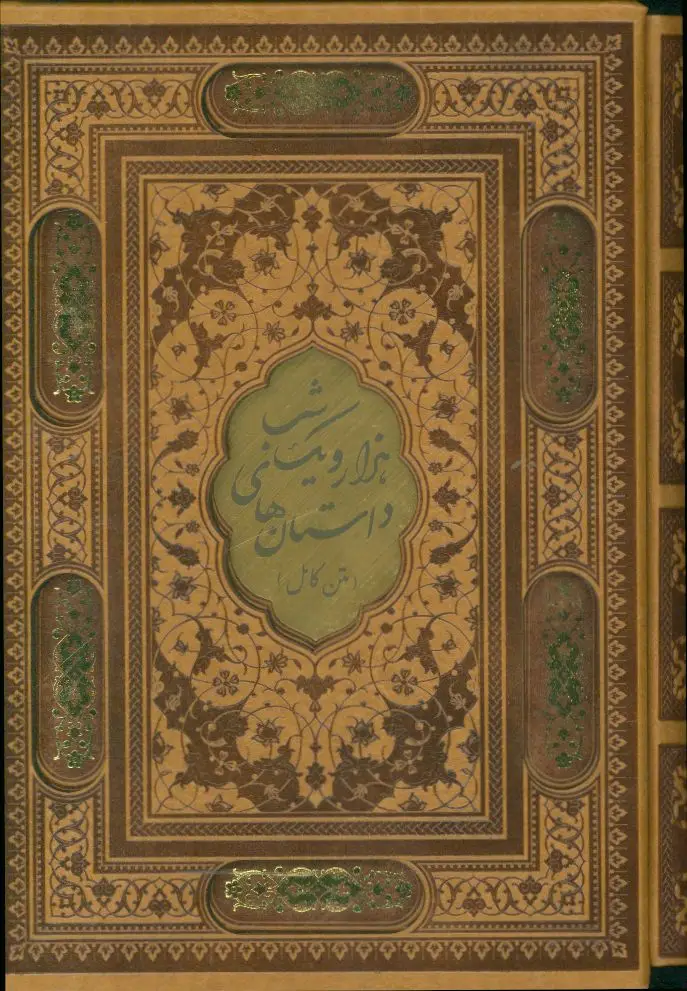 داستان‌های
هزار و یک شب
(متن کامل)